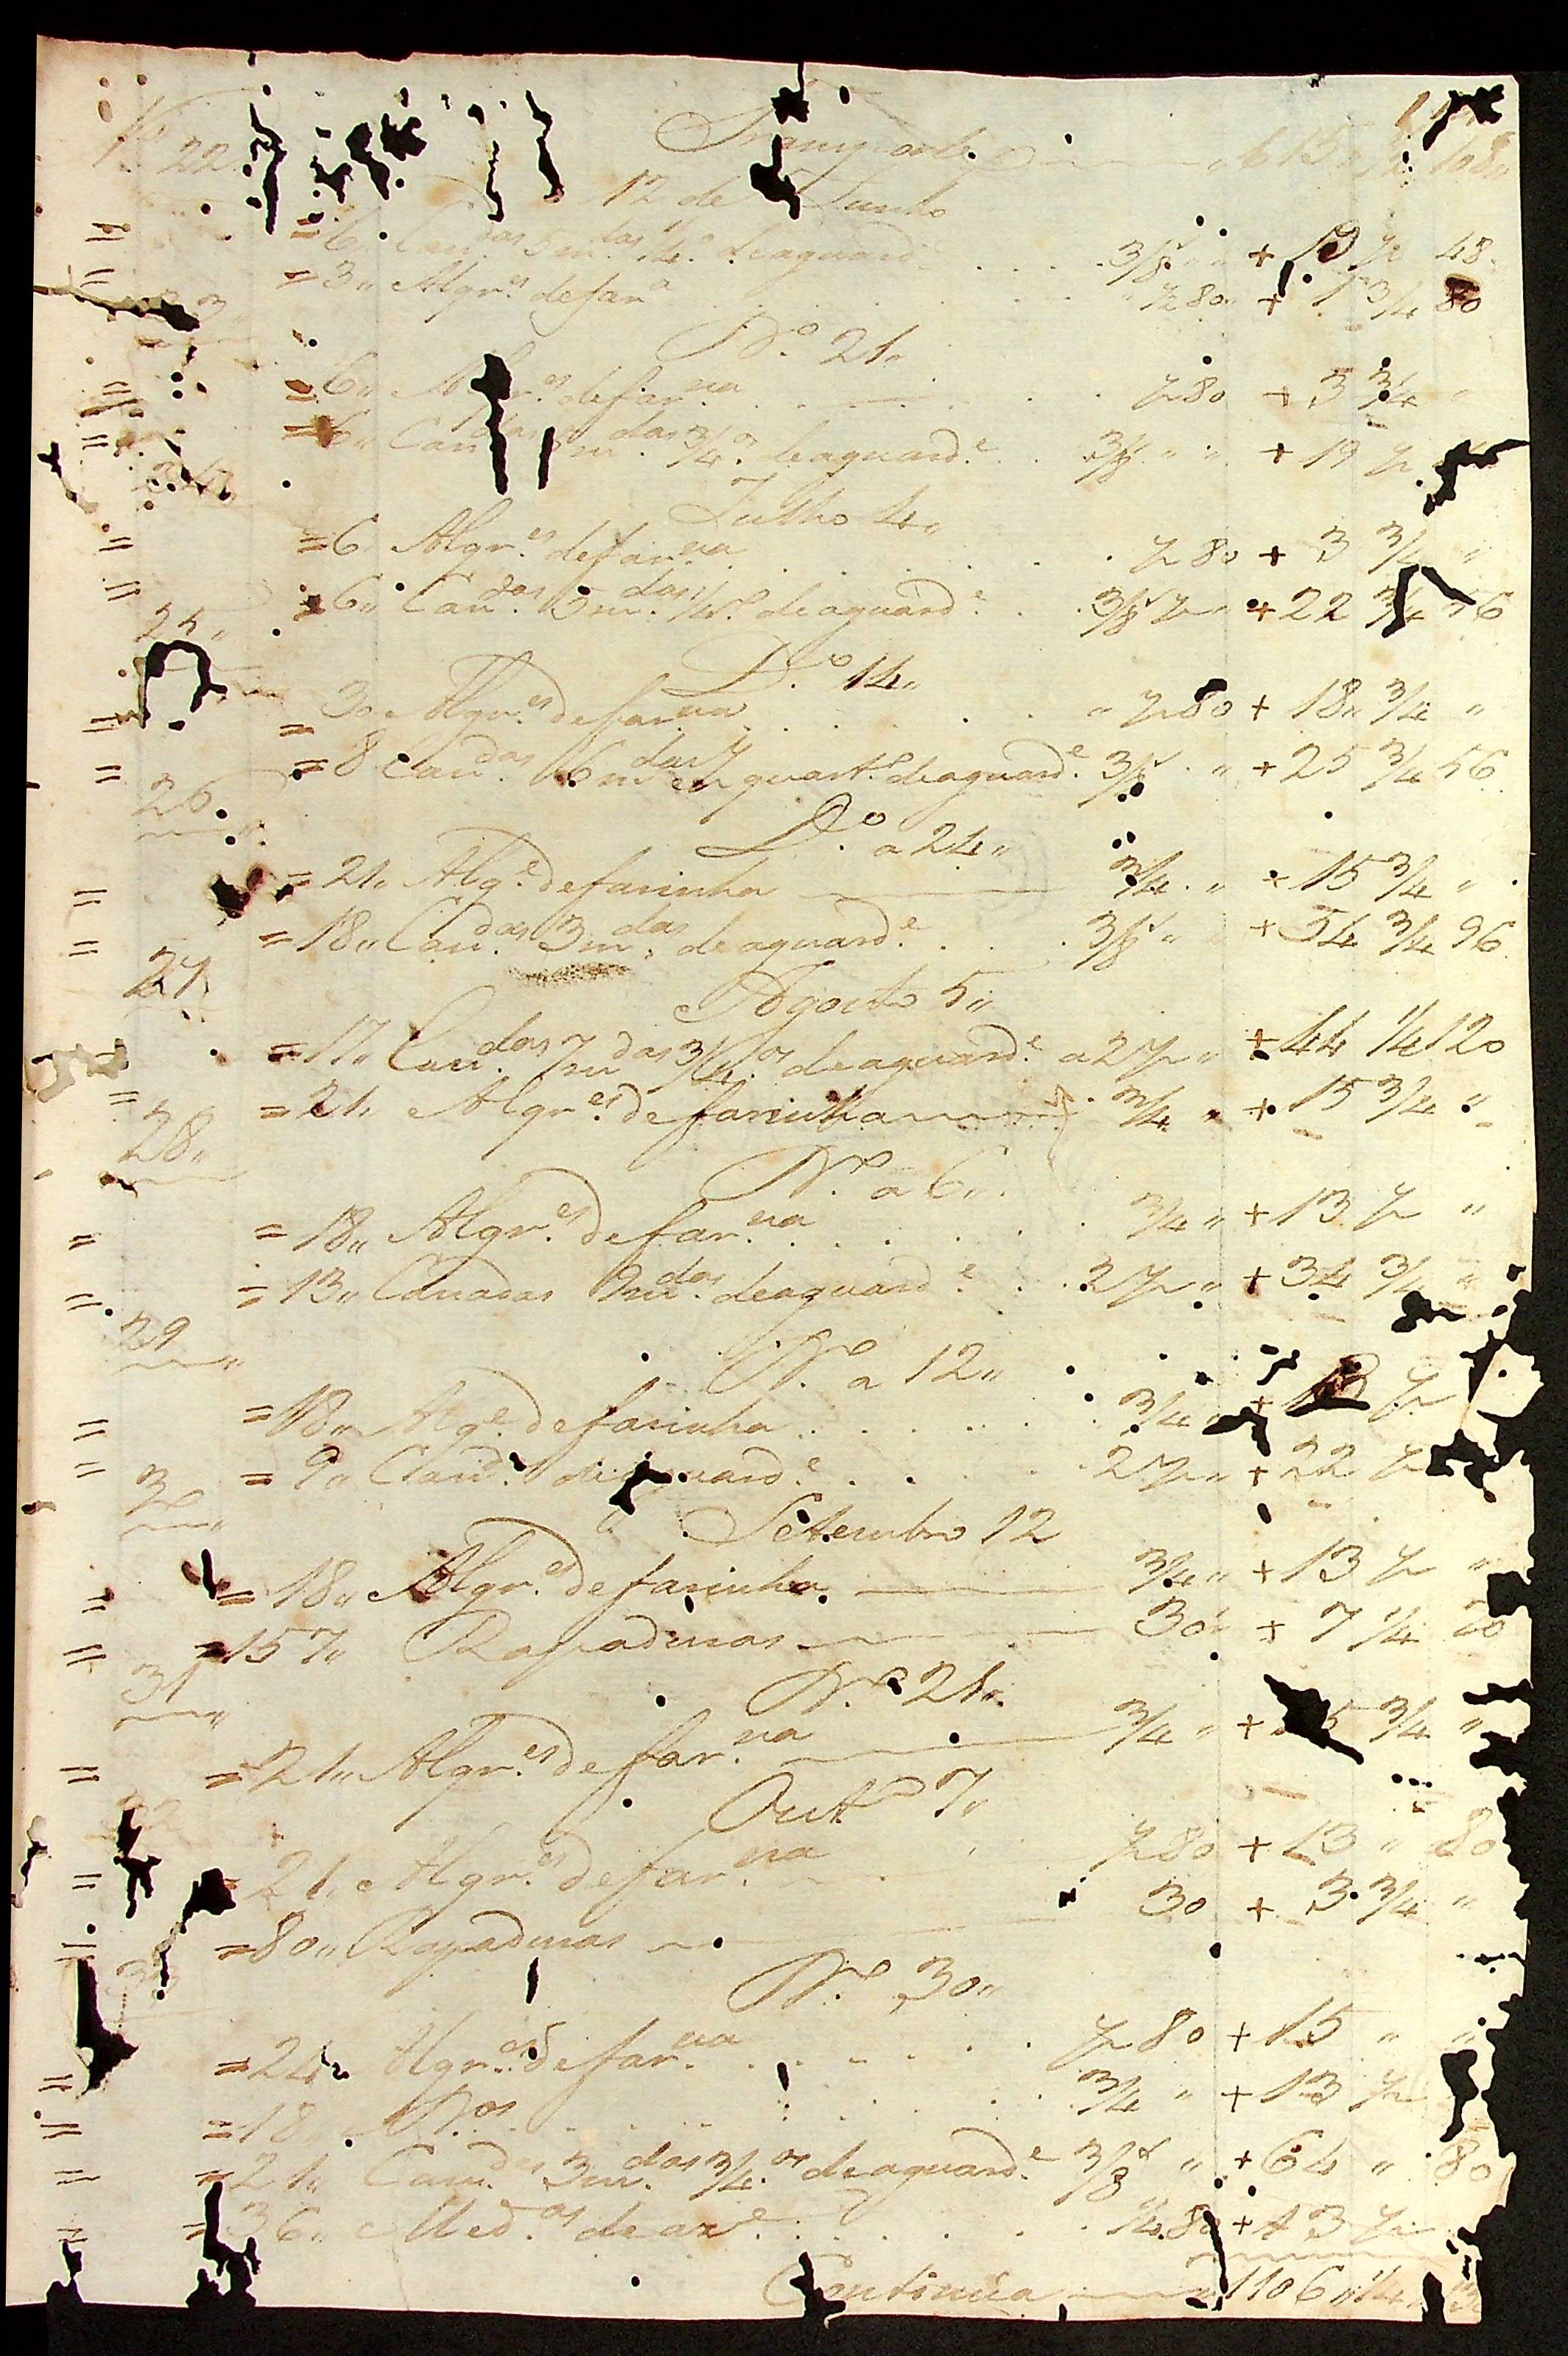 Transporte
22
12 de Junho
= 6 Can.das 3 m.das 1/4.o deaguard.e 3/8.as + 19 1/2 48
= 3,, Alqr.es defar.a 1/2 80 + 1 3/4 80
23
D.o 21,,
= 6,, Alqr.es defar.na 1/2 80 + 3 3/4 "
= 6,, Can.das 3 m.das 3/4.os deaguard.e 3/8 " " + 19 1/2
Julho 4,,
= 6 Alqr.es defar.na 1/2 80 + 3 3/4 "
= 6,, Can.das 5 m.das 1/4.o deaguard.e 3/8 1/2 + 22 3/4 56
25,,
D.o 14,,
= 30 Alqr.es defar.na " 1/2 80 + 18,, 3/4 "
= 8 Can.das 6 m.das 1/2 quart.o deaguard.e 3/8 " + 25 3/4 56
26
D.o a 24,,
= 21,, Alq.e defarinha 3/4 " + 15 3/4 "
= 18,, Can.das 3 m.das deaguard.e 3/8 " + 54 3/4 96
27
Agosto 5,,
= 17,, Can.das 7 m.das 3/4.os deaguard.e a 2 1/2 " + 44 1/4 120
= 21,, Alqr.es defarinha 3/4 " + 15 3/4 "
28,,
D.o a 6,,
= 18,, Alqr.es defar.na 3/4 " + 13 1/2 "
= 13,, Canadas 9 m.das deaguard.e 2 1/2 " + 34 3/4 "
29
D.o a 12,,
= 18,, Alq.e defarinha 3/4 " + 13 1/2
= 9,, Can.d deaguard.e 2 1/2 " + 22 1/2
30
Setembro 12
= 18,, Alqr.es defarinha 3/4 " + 13 1/2 "
= 157,, Rapaduras 30 + 7 1/4 20
31
D.o 21,,
= 21,, Alqr.es defar.na 3/4 " + 15 3/4 "
Out.o 7,,
= 21,, Alqr.es defar.na 1/2 80 + 13 " 80
= 80,, Rapaduras 30 + 3 3/4 "
D.o 30,,
= 24,, Alqr.es defar.na 1/2 80 + 15 " "
= 18,, D.os 3/4 " + 13 1/2
= 21,, Can.das 3 m.das 3/4.os deaguard.e 3/8 " + 64 " 80
= 36,, Med.as deaz.e 1/4 80 + 13 1/2
Continúa 1106,, 1/4